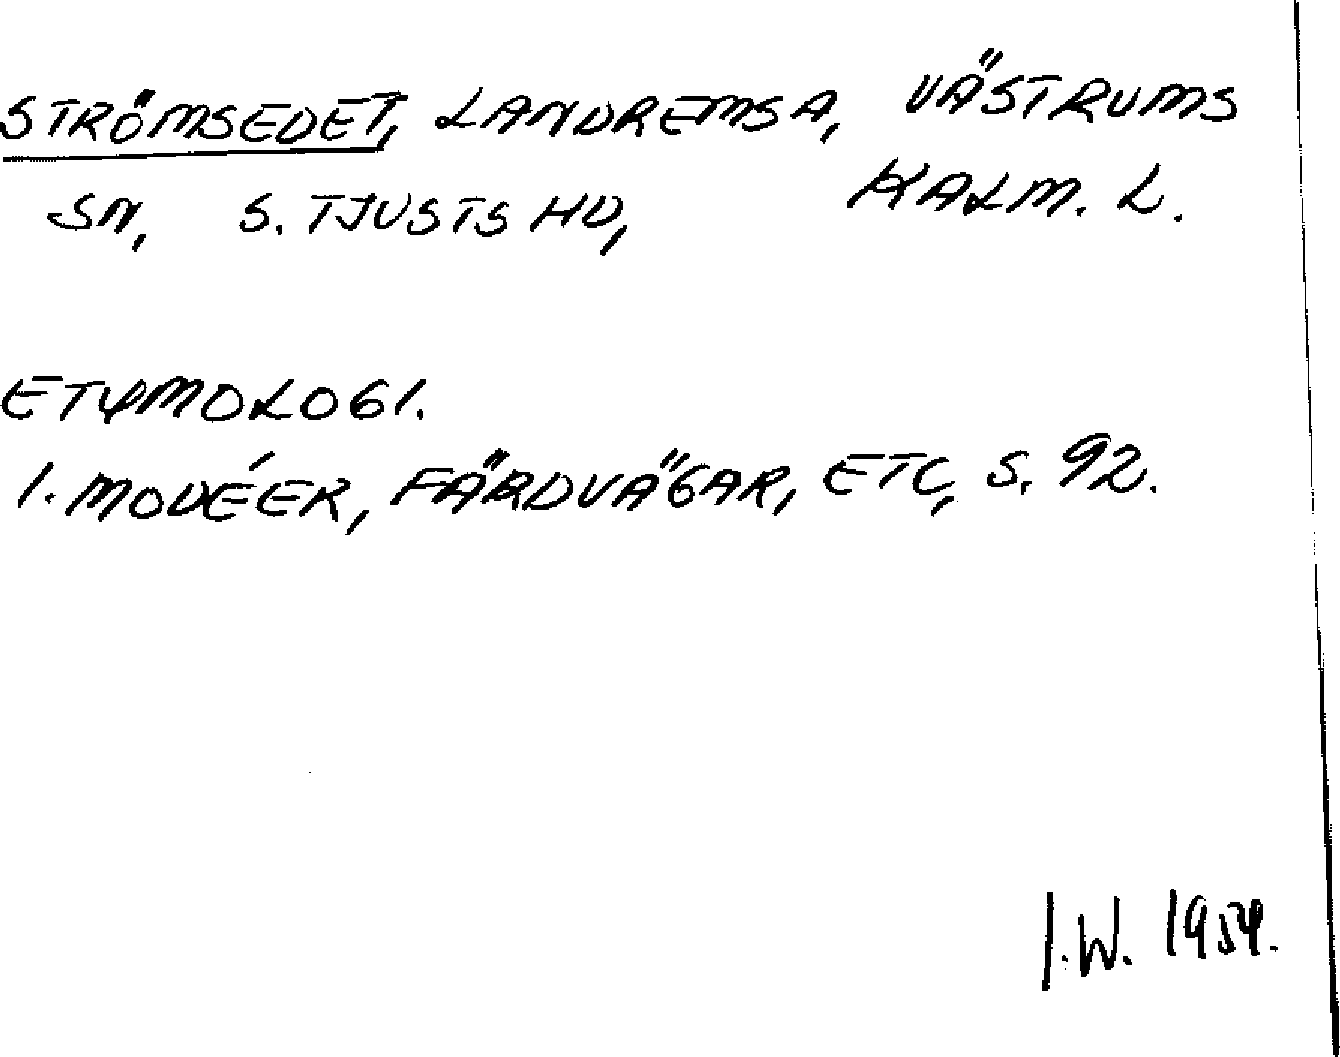 STRÖMSEDET, LANDREMSA, VÄSTRUMS
SN, S. TJUSTS HD, KALM. L.
ETYMOLOGI.
I. MODÉER, FÄRDVÄGAR, ETC, S. 92.
I.W. 1954.